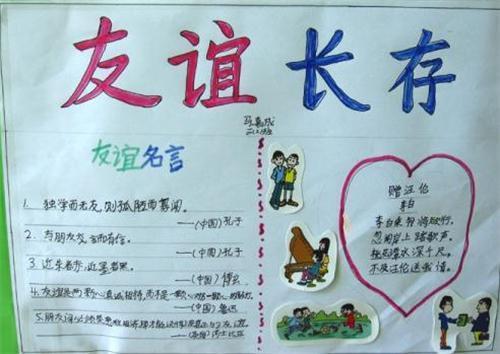 友谊长存
友谊名言
1. 独学而无友,则孤陋而寡闻。
——(中国)孔子
2. 与朋友交,言而有信。
——(中国)孔子
3. 近朱者赤,近墨者黑。
——(中国)傅玄
4. 友谊是两颗心真诚相待,而不是一颗心对另一颗心的敲打。
——(中国)鲁迅
5. 朋友
赠汪伦
李白
李白乘舟将欲行,
忽闻岸上踏歌声。
桃花潭水深千尺,
不及汪伦送我情。